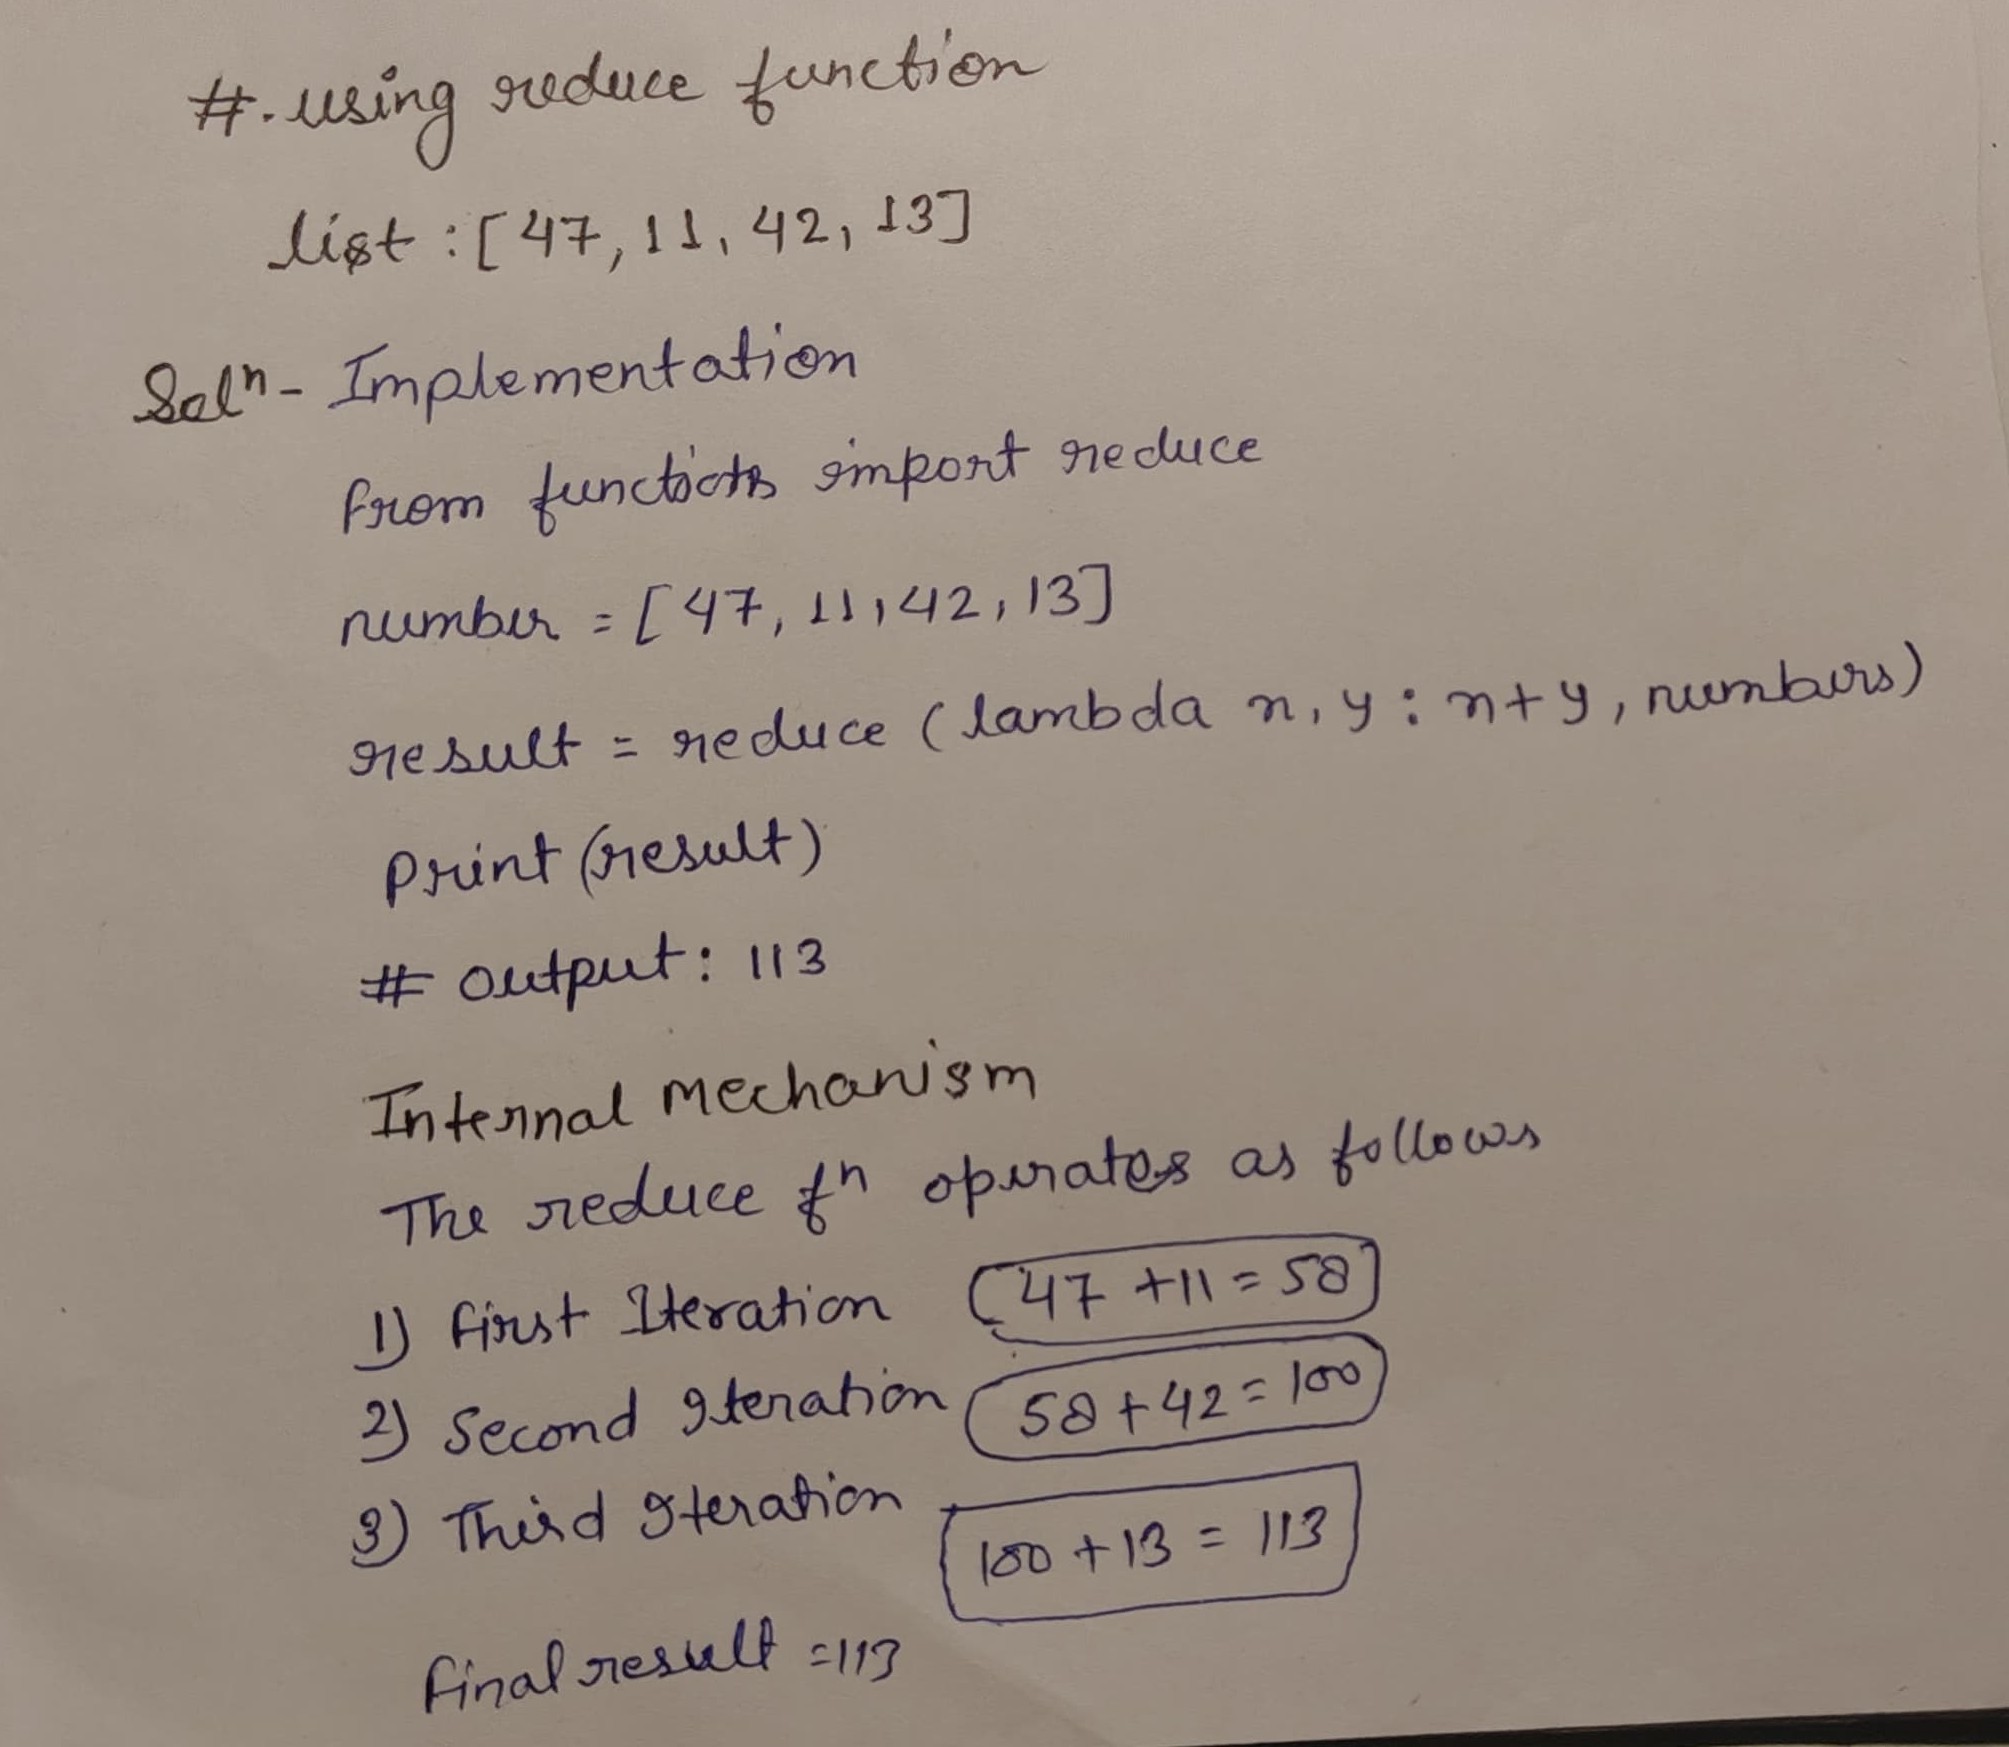 #. using reduce function
list : [47, 11, 42, 13]
Solⁿ - Implementation
from functiots import reduce
number = [47, 11, 42, 13]
result = reduce (lambda n, y : n+y, numbers)
Print (result)
# output : 113
Internal Mechanism
The reduce fⁿ operates as follows
1) First Iteration (47 + 11 = 58)
2) Second Iteration 58 + 42 = 100
3) Third Iteration 100 + 13 = 113
final result = 113